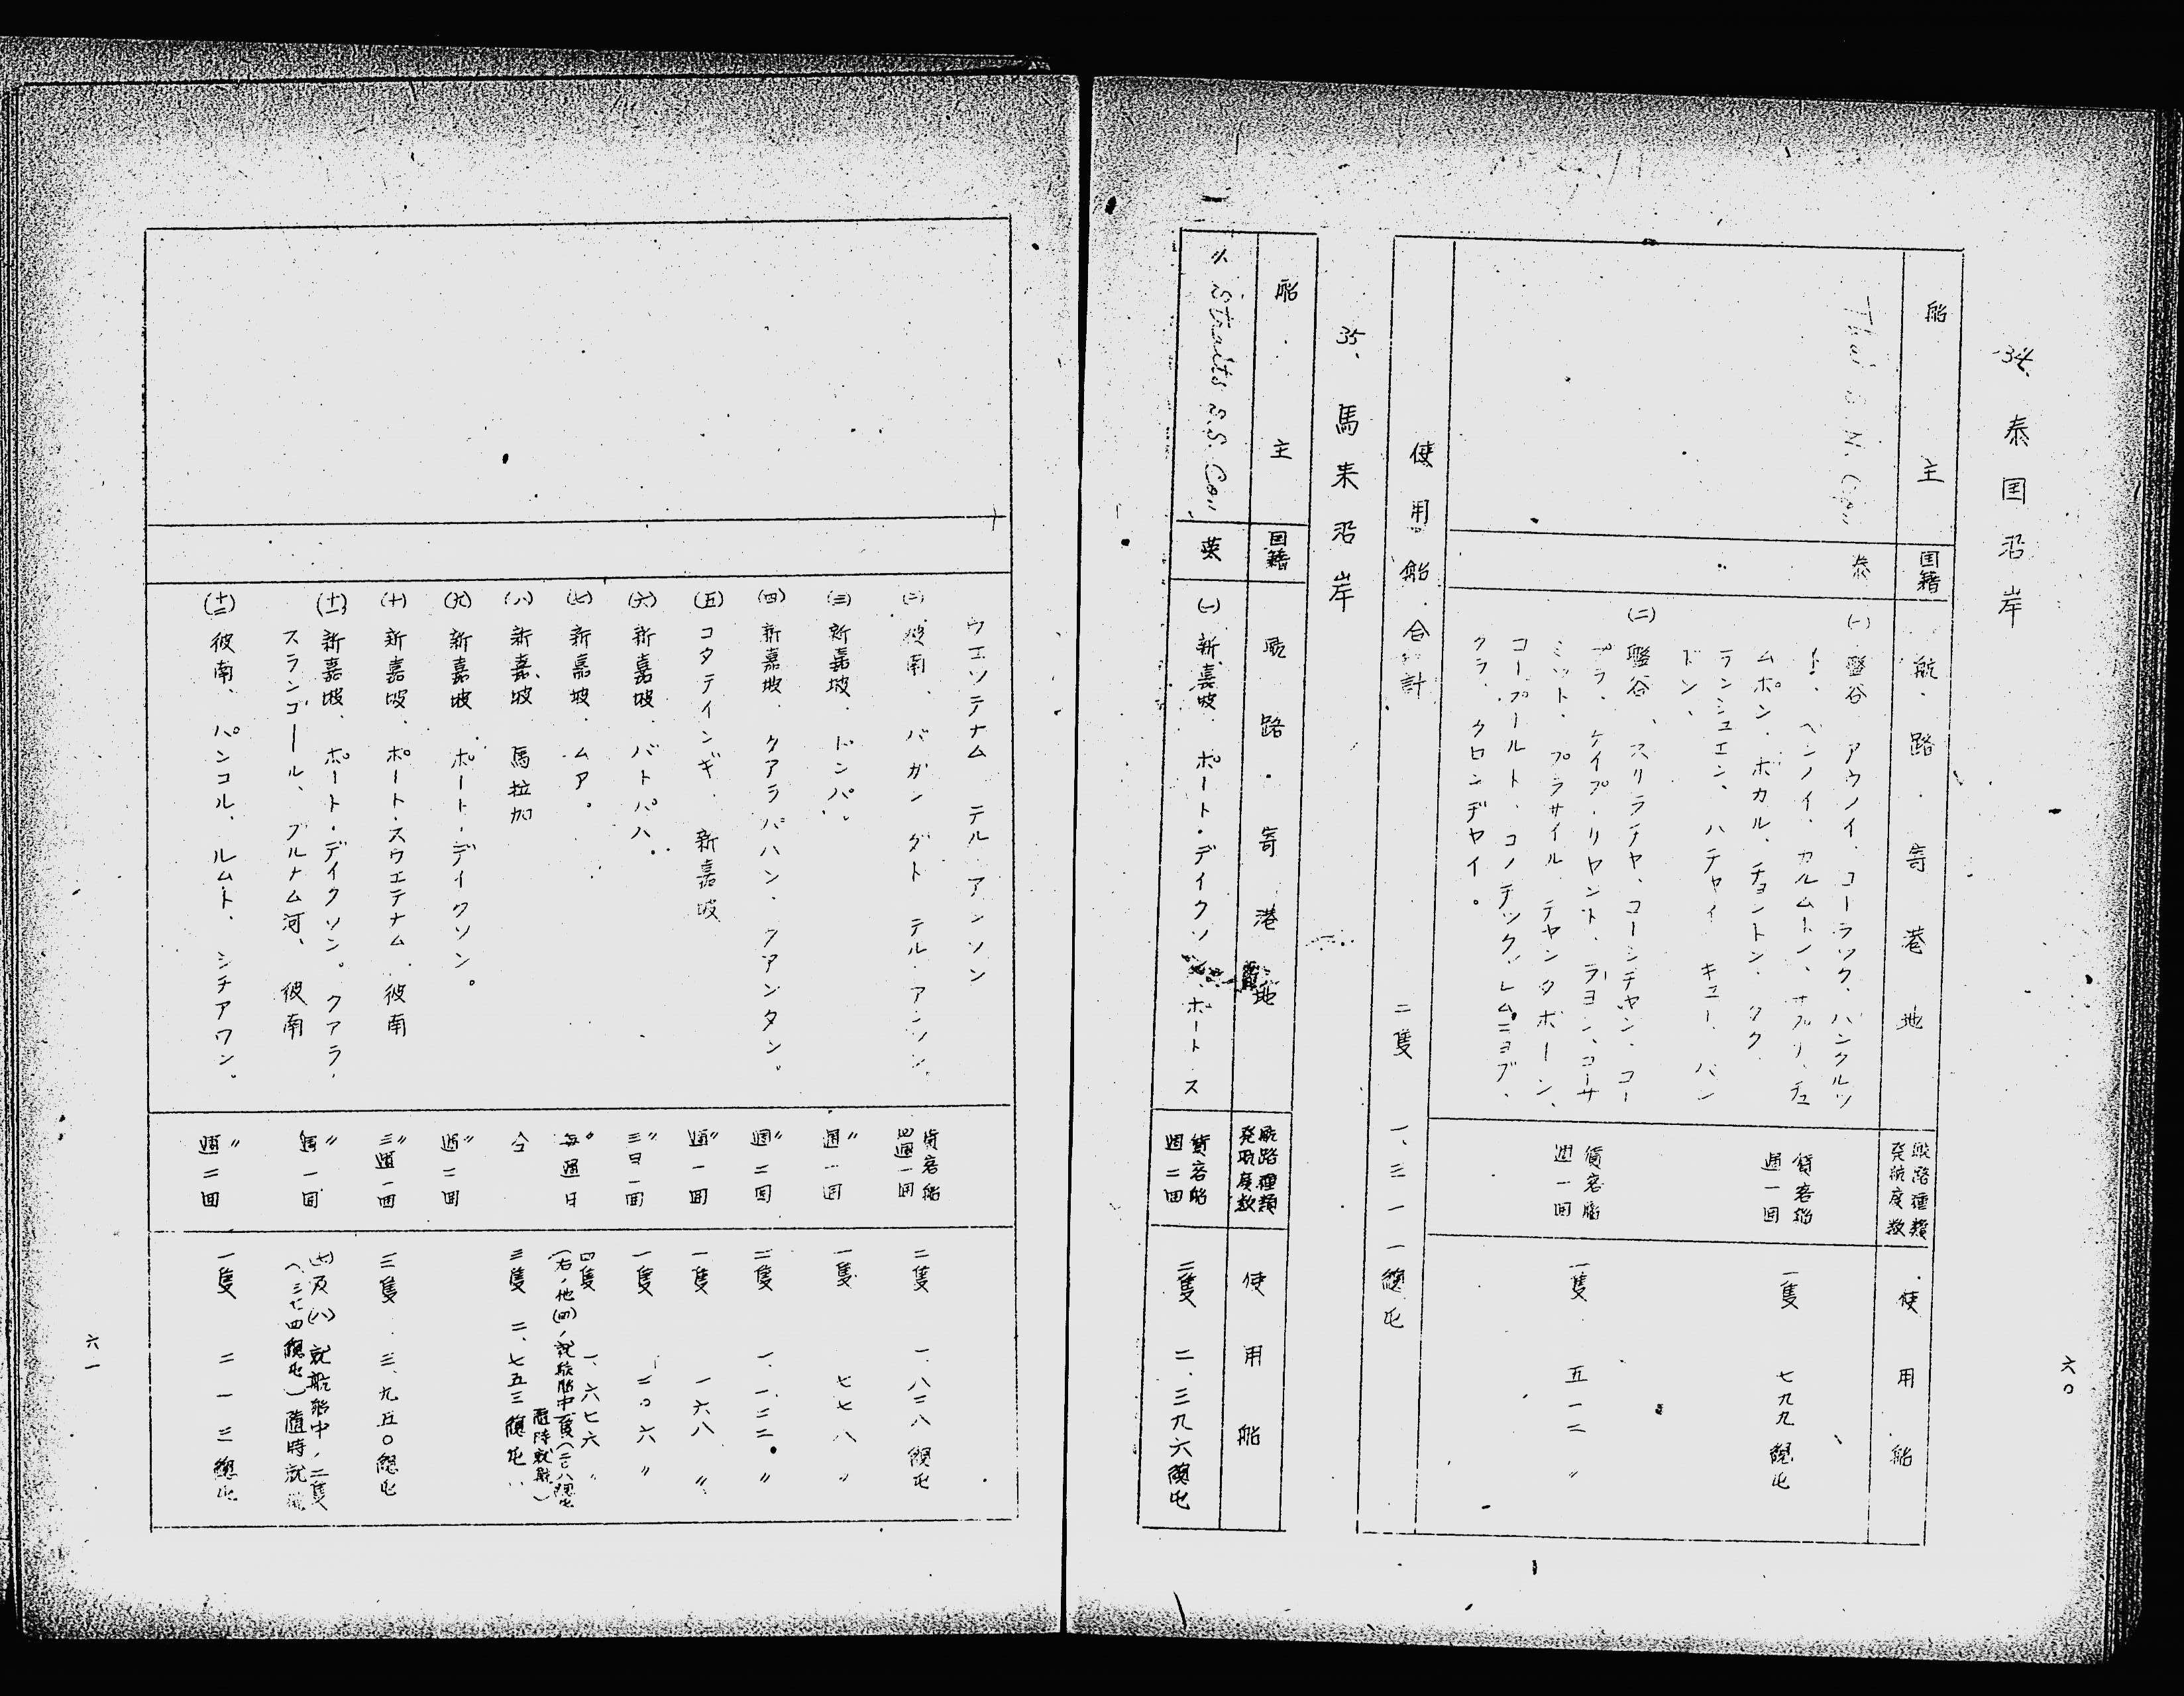 34、泰国沿岸
船主
国籍
航路・寄港地
航路種類
発航度数
使用船
Thai S. N. Coy
泰
(一) 盤谷 アウノイ、コーラック、バンクルツ
ト、ヘンノイ、カルムトン、サプリ、チュ
ムポン、ホカル、チョントン、クク
ランシュエン、ハチヤイ キュー、バン
ドン、
貨客船
週一回
一隻 七九九総屯
(二) 盤谷、スリラチヤ、コーシチヤン、コー
プラ、ケイプ・リヤント、ラヨン、コーサ
ミット、プラサイル チヤンタボーン、
コープールト、コノテツク、レムニヨブ、
クラ、クロンヂヤイ。
貨客船
週一回
一隻 五一二〃
使用船合計 二隻 一、三一一総屯
35、馬来沿岸
船主
国籍
航路・寄港地
航路種類
発航度数
使用船
〃 Straits S.S. Coy
英
(一) 新嘉坡 ポート・デイクソン、ポート ス
貨客船
週二回
二隻 二、三九六総屯
六〇
ウエツテナム テル アンソン
(二) 彼南、バガン ダト テル・アンソン、
貨客船
四週一回
二隻 一、八三八総屯
(三) 新嘉坡、ドンパ、
〃週一回
一隻 七七八〃
(四) 新嘉坡、クアラパハン、クアンタン。
〃週二回
二隻 一、一二二〃
(五) コタテインギ、新嘉坡
〃週一回
一隻 一六八〃
(六) 新嘉坡、バトパハ、
〃三日一回
一隻 二〇六〃
(七) 新嘉坡、ムア。
〃毎週日
四隻 一、六七六〃
(右ノ他(四)ノ就航船中一隻(二八総屯
随時就航)
(八) 新嘉坡 馬拉加
仝
三隻 二、七五三総屯
(九) 新嘉坡 ポート・デイクソン。
〃週二回
(十) 新嘉坡、ポート・スウエテナム、彼南
〃三週一回
三隻 三、九五〇総屯
(十一) 新嘉坡、ポート・デイクソン。クアラ、
スランゴール、ブルナム河、彼南
〃週一回
(七)及(八)就航船中ノ二隻
総屯)随時就航
(十二) 彼南、パンコル、ルムト、シチアワン。
〃週二回
一隻 二一三総屯
六一